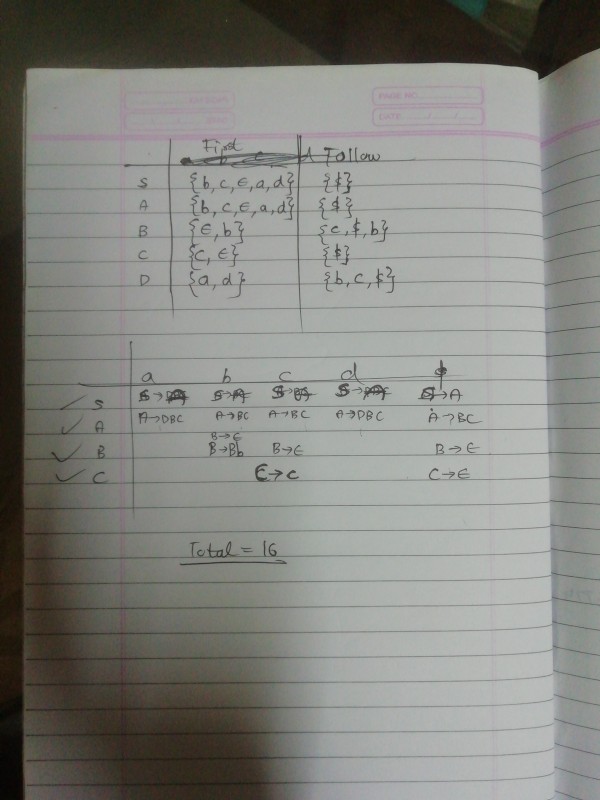 PAGE NO.
DATE
First Follow
S {b, c, ϵ, a, d} {$}
A {b, c, ϵ, a, d} {$}
B {ϵ, b} {c, $, b}
C {c, ϵ} {$}
D {a, d} {b, c, $}
a b c d $
S S→A S→A S→A S→A S→A
A A→DBC A→BC A→BC A→DBC A→BC
B→ϵ
B B→Bb B→ϵ B→ϵ
C C→c C→ϵ
Total = 16